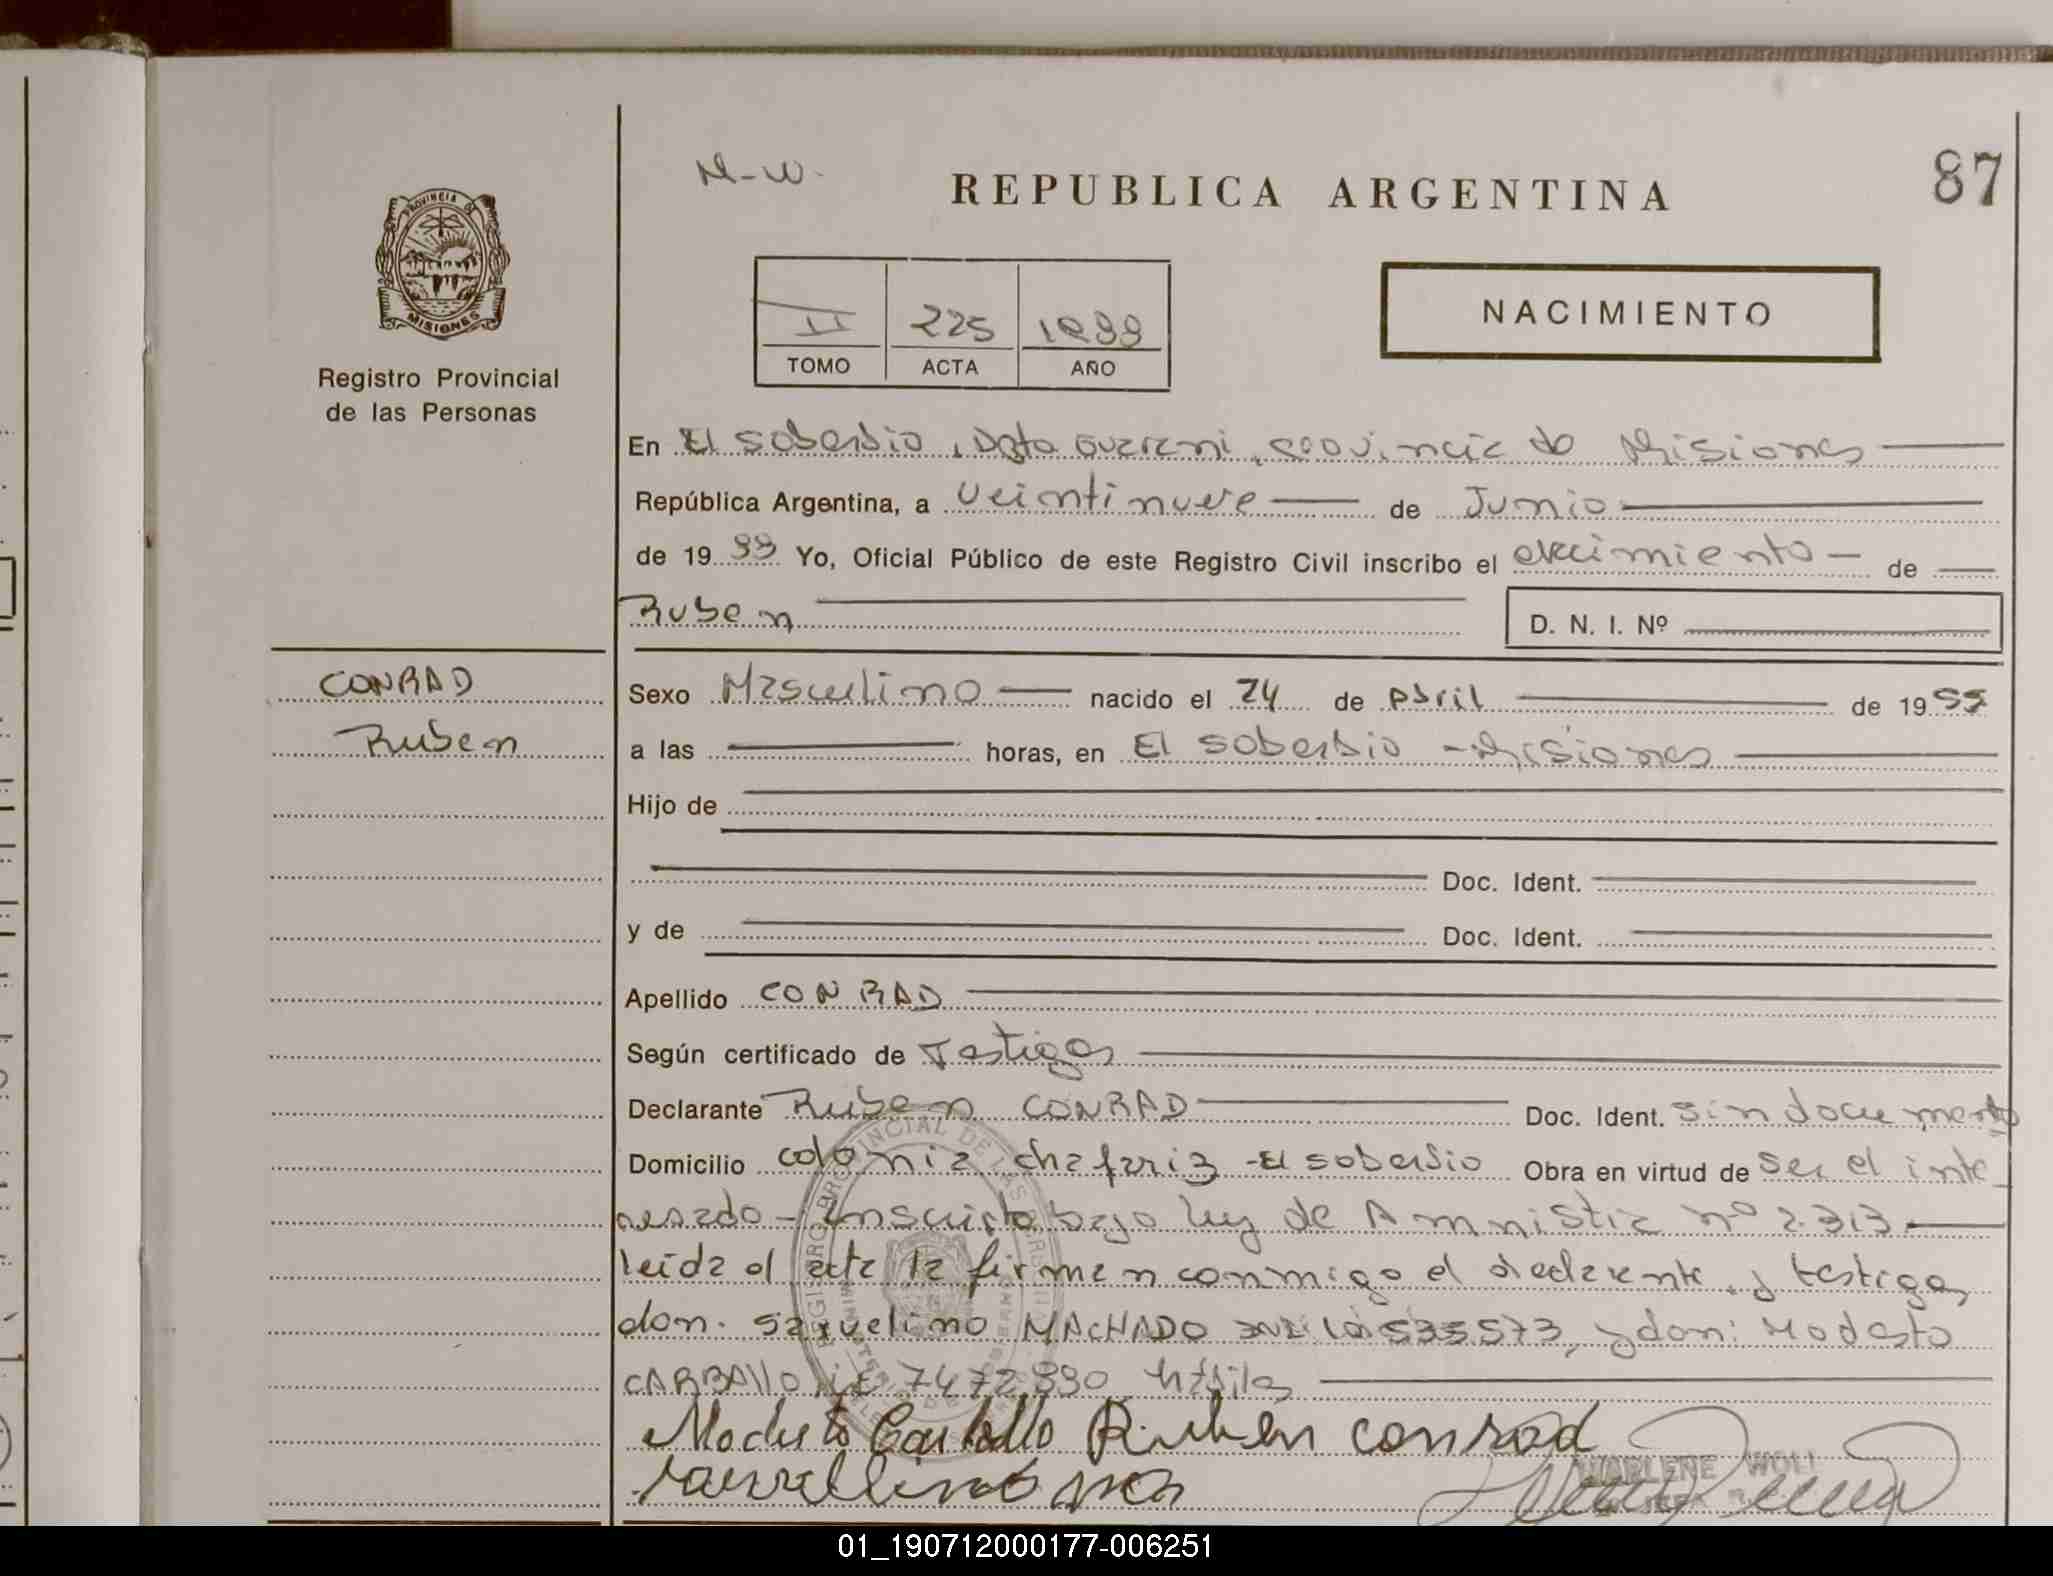 M-W.
REPUBLICA ARGENTINA
87
PROVINCIA DE
MISIONES
II 225
TOMO ACTA AÑO
NACIMIENTO
Registro Provincial
de las Personas
En El Soberbio, Dpto Guarani, provincia de Misiones
República Argentina, a veintinueve de Junio
de 19 Yo, Oficial Público de este Registro Civil inscribo el nacimiento de
Ruben
D. N. I. Nº
CONRAD
Ruben
Sexo Masculino nacido el 24 de Abril de 19
a las horas, en El Soberbio - Misiones
Hijo de
Doc. Ident.
y de Doc. Ident.
Apellido CONRAD
Según certificado de Testigos
Declarante Ruben CONRAD Doc. Ident. sin documento
Domicilio colonia chafariz - El Soberbio Obra en virtud de ser el inte_
resado - Inscripto bajo ley de Amnistia nº 2.313
leida el acta la firman conmigo el declarante y testigos
don. MACHADO y don: Modesto
CARBALLO habiles
Modesto Carballo Ruben conrad
MARLENE
REGISTRO PROVINCIAL DE LAS
01_190712000177-006251